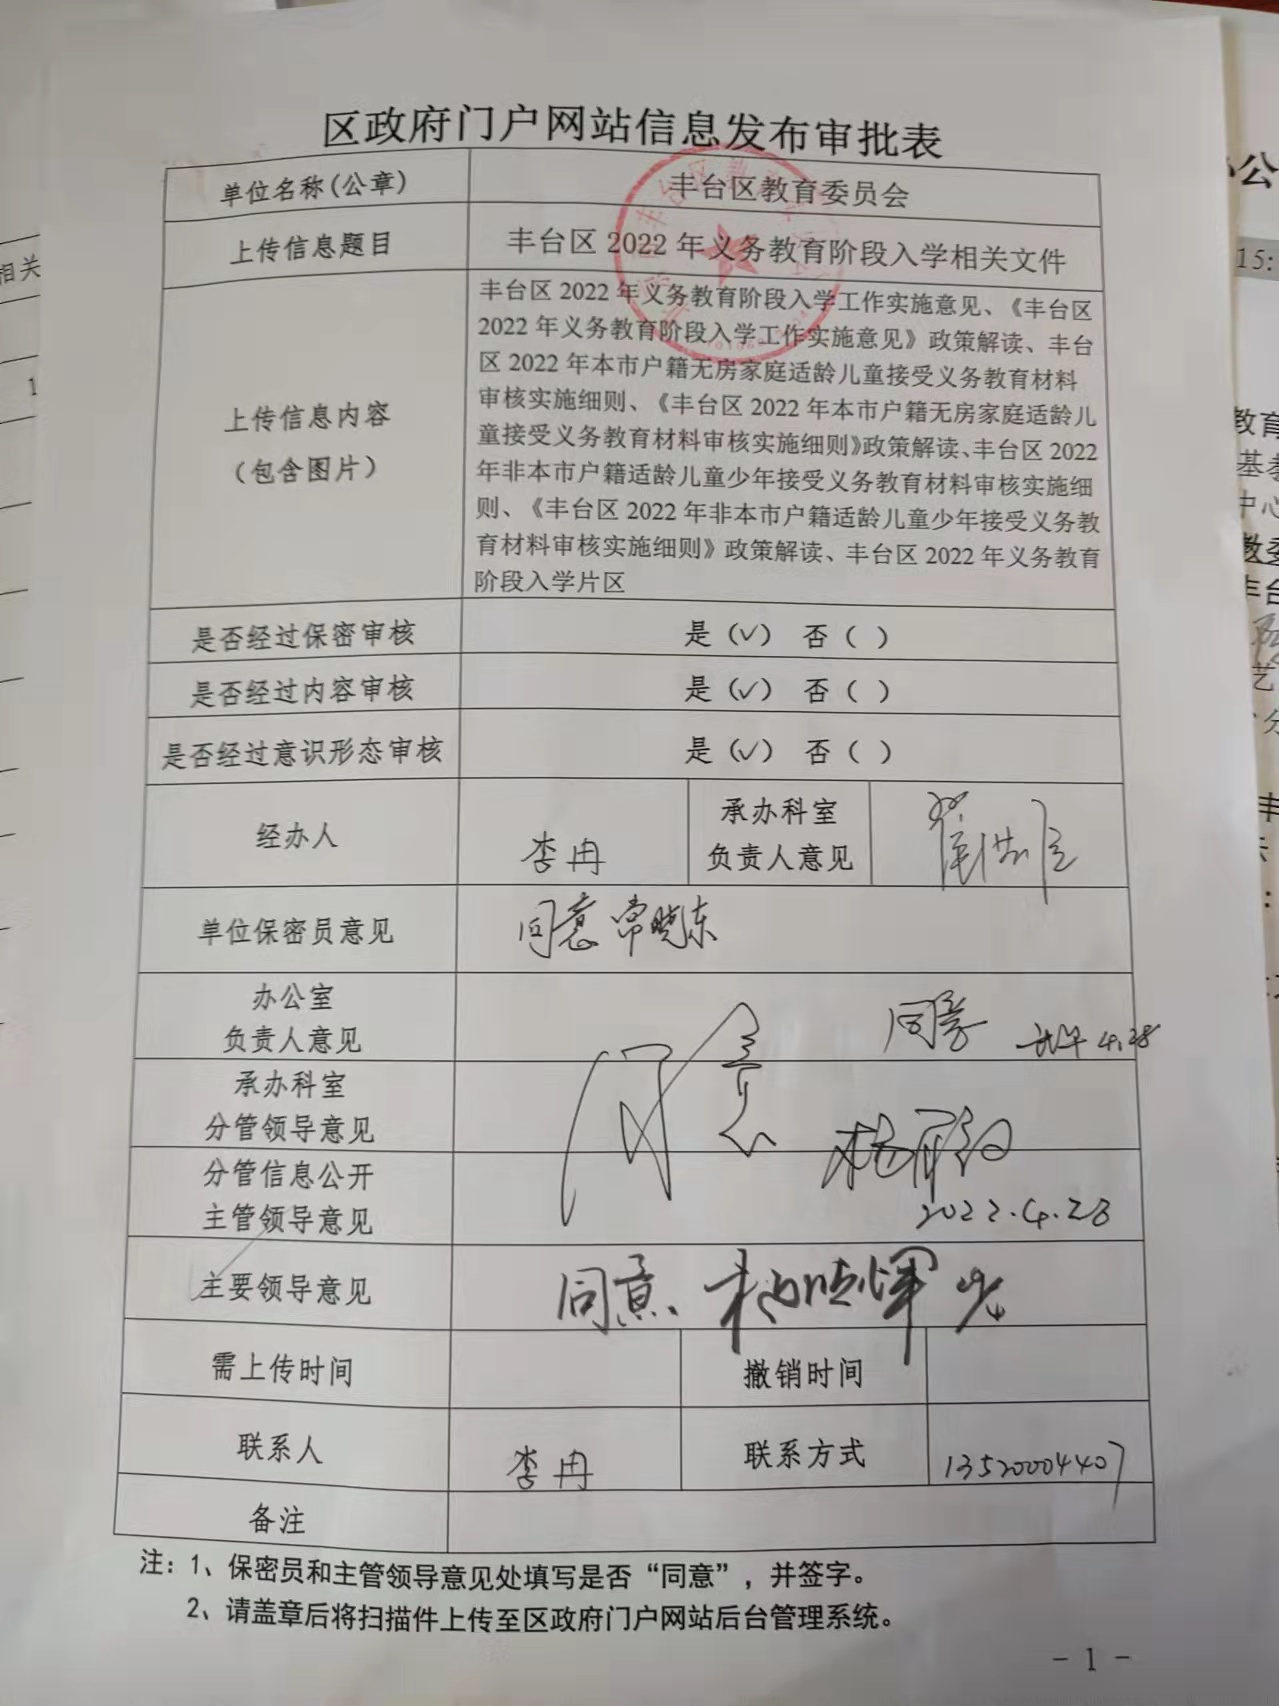 区政府门户网站信息发布审批表
单位名称(公章) 丰台区教育委员会
上传信息题目 丰台区 2022 年义务教育阶段入学相关文件
上传信息内容
（包含图片）
丰台区 2022 年义务教育阶段入学工作实施意见、《丰台区
2022 年义务教育阶段入学工作实施意见》政策解读、丰台
区 2022 年本市户籍无房家庭适龄儿童接受义务教育材料
审核实施细则、《丰台区 2022 年本市户籍无房家庭适龄儿
童接受义务教育材料审核实施细则》政策解读、丰台区 2022
年非本市户籍适龄儿童少年接受义务教育材料审核实施细
则、《丰台区 2022 年非本市户籍适龄儿童少年接受义务教
育材料审核实施细则》政策解读、丰台区 2022 年义务教育
阶段入学片区
是否经过保密审核 是（√） 否（ ）
是否经过内容审核 是（√） 否（ ）
是否经过意识形态审核 是（√） 否（ ）
经办人 李冉
承办科室
负责人意见
单位保密员意见 同意 常晓东
办公室
负责人意见
同意 4.28
承办科室
分管领导意见
同意
分管信息公开
主管领导意见
2022.4.28
主要领导意见 同意、
需上传时间 撤销时间
联系人 李冉 联系方式 13520004407
备注
注：1、保密员和主管领导意见处填写是否“同意”，并签字。
2、请盖章后将扫描件上传至区政府门户网站后台管理系统。
- 1 -
相关
1
办公
15:
教育